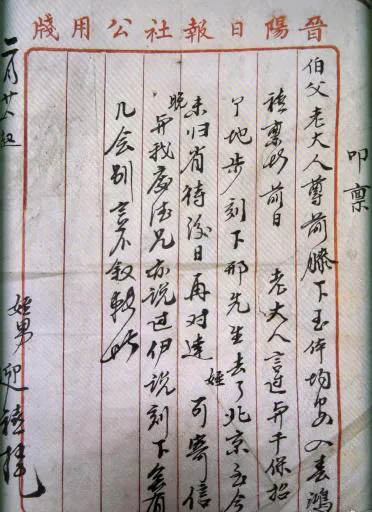 晉陽日報社公用牋
叩禀
伯父老大人尊前膝下玉体均安入春鴻
禧禀者前日 老大人言过与干保招
个地步刻下邢先生去了北京至今
未归省待後日再对達 姪可寄信
晚与我處法兄亦说过伊说刻下無有
几会别言不叙敬此
姪男迎禧挍
二月廿八日